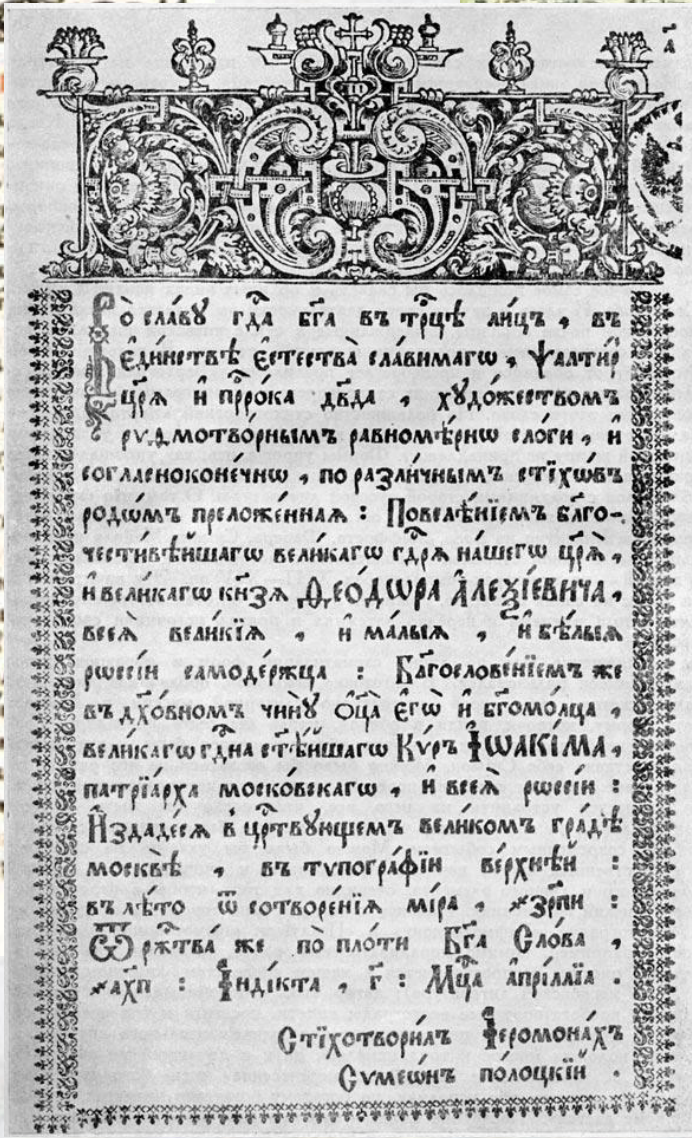 Во сла́вꙋ гдⷭ҇а бг҃а въ трⷪ҇цѣ ли́цъ , въ
є҆ди́нствѣ є҆стества̀ сла́вимагѡ , Ѱалти́р
цр҃ѧ̀ и҆ прⷪ҇ро́ка дв҃да , хꙋдо́жествомъ
рѵѳмотво́рнымъ равномѣ́рнѡ сло́ги , и҆
согласноконе́чнѡ , по разли́чнымъ стїхѡ́въ
родѡ́мъ преложе́ннаѧ : Повелѣ́нїемъ блг҃о-
чести́вѣйшагѡ вели́кагѡ гдⷭ҇рѧ на́шегѡ цр҃ѧ̀ ,
и҆ вели́кагѡ кн҃зѧ Ѳео́дѡра А҆леѯі́евича ,
всеѧ̀ вели́кїѧ , и҆ ма́лыѧ , и҆ бѣ́лыѧ
рѡссі́и самоде́ржца : Блг҃ослове́нїемъ же
въ дх҃о́вномъ чи́нꙋ Ѻ҆ц҃а̀ є҆гѡ̀ и҆ бг҃омо́лца ,
вели́кагѡ гдⷭ҇на ст҃ѣ́йшагѡ Кѵ́ръ І҆ѡаки́ма ,
патрїа́рха моско́вскагѡ , и҆ всеѧ̀ рѡссі́и :
И҆здаде́сѧ в црⷭ҇твꙋющемъ вели́комъ гра́дѣ
москвѣ̀ , въ тѵпогра́фїи ве́рхнѣй :
въ лѣ́то ѿ сотворе́нїѧ мі́ра , ҂зрпи :
Ѿ ржⷭ҇тва́ же по пло́ти Бг҃а Сло́ва ,
҂ахп : І҆нді́кта , г҃ : Мцⷭ҇а а҆прі́ллїа .
Стїхотвори́лъ І҆еромона́хъ
Сѵмеѡ́нъ по́лоцкїй .